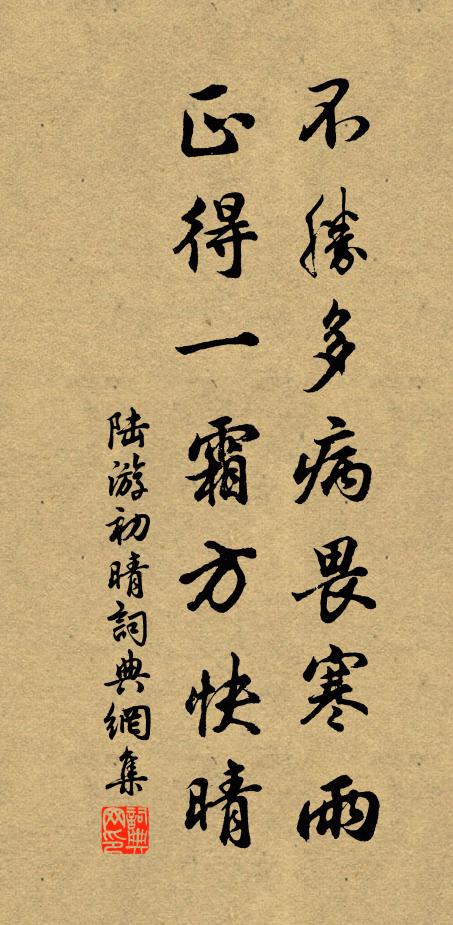 不勝多病畏寒雨
正得一霜方快晴
陆游初晴詞典網集
詞典
网印